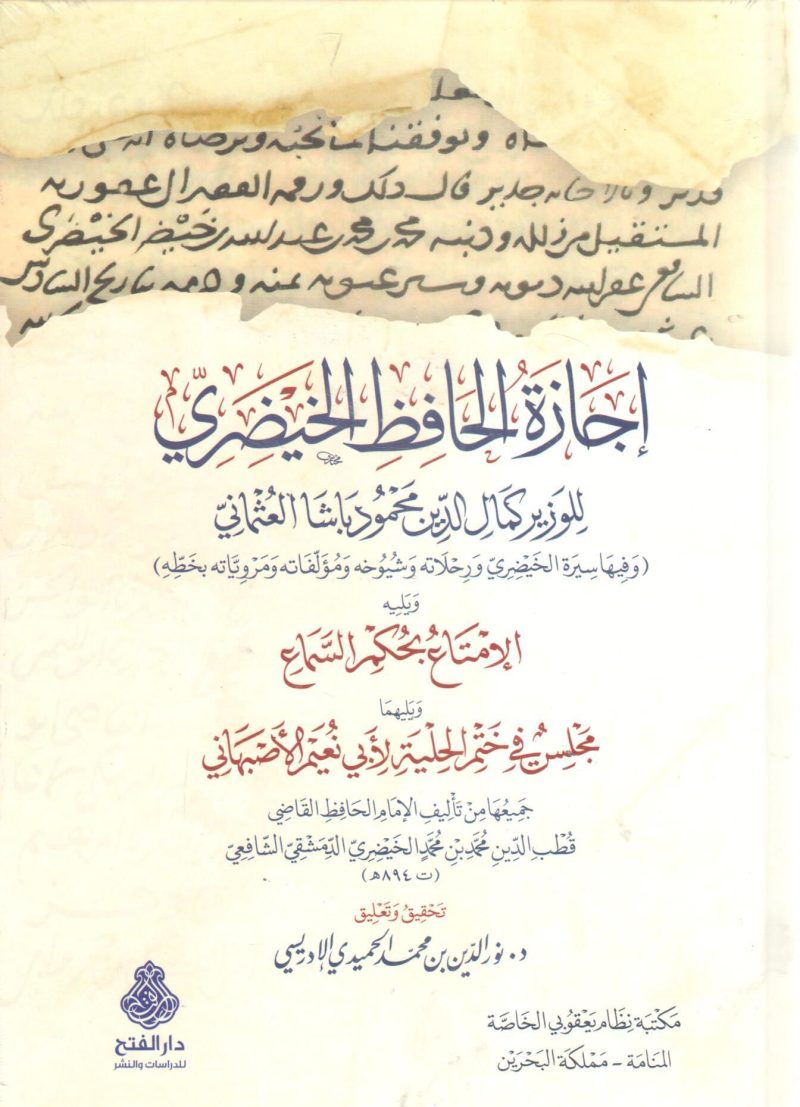 وتوفقنا لما نحبه وترضاه
جدير قال ذلك ورقمه الفقير إلى عفو ربه
المستقيل من زلله وذنبه محمد بن محمد بن عبد الله بن خيضر الخيضري
الشافعي عفا الله ذنوبه وستر عيوبه بمنه
إجَازَةُ الحَافِظِ الخَيْضِرِيّ
لِلوَزِير كمَالِ الدِّين مَحْمُود بَاشَا العُثْمَانيّ
(وَفِيهَا سِيرَة الخَيْضِرِيّ وَرِحْلَاته وَشُيُوخه وَمُؤَلَّفَاته وَمَرْوِيَّاته بخَطِّهِ)
وَيَلِيه
الإمْتَاعُ بحُكمِ السَّمَاعِ
وَيَلِيهِمَا
مَجْلِسٌ فِي خَتْمِ الحِليَةِ لِأَبِي نُعَيْمٍ الأَصْبَهَانِي
جَمِيعُهَا مِنْ تَأْلِيفِ الإمَامِ الحَافِظِ القَاضِي
قُطْبِ الدِّينِ مُحَمَّدِ بْنِ مُحَمَّدٍ الخَيْضِرِيِّ الدِّمَشْقِيِّ الشَّافِعِيِّ
(ت ٨٩٤هـ)
تَحْقِيقُ وَتَعْلِيق
د. نور الدّين بن محمّد الحميدي الإدريسي
مَكْتَبَة نِظَام يَعْقُوبِي الخَاصَّة
المَنَامَة - مَمْلَكَة البَحْرَيْن
دار الفتح
للدراسات والنشر